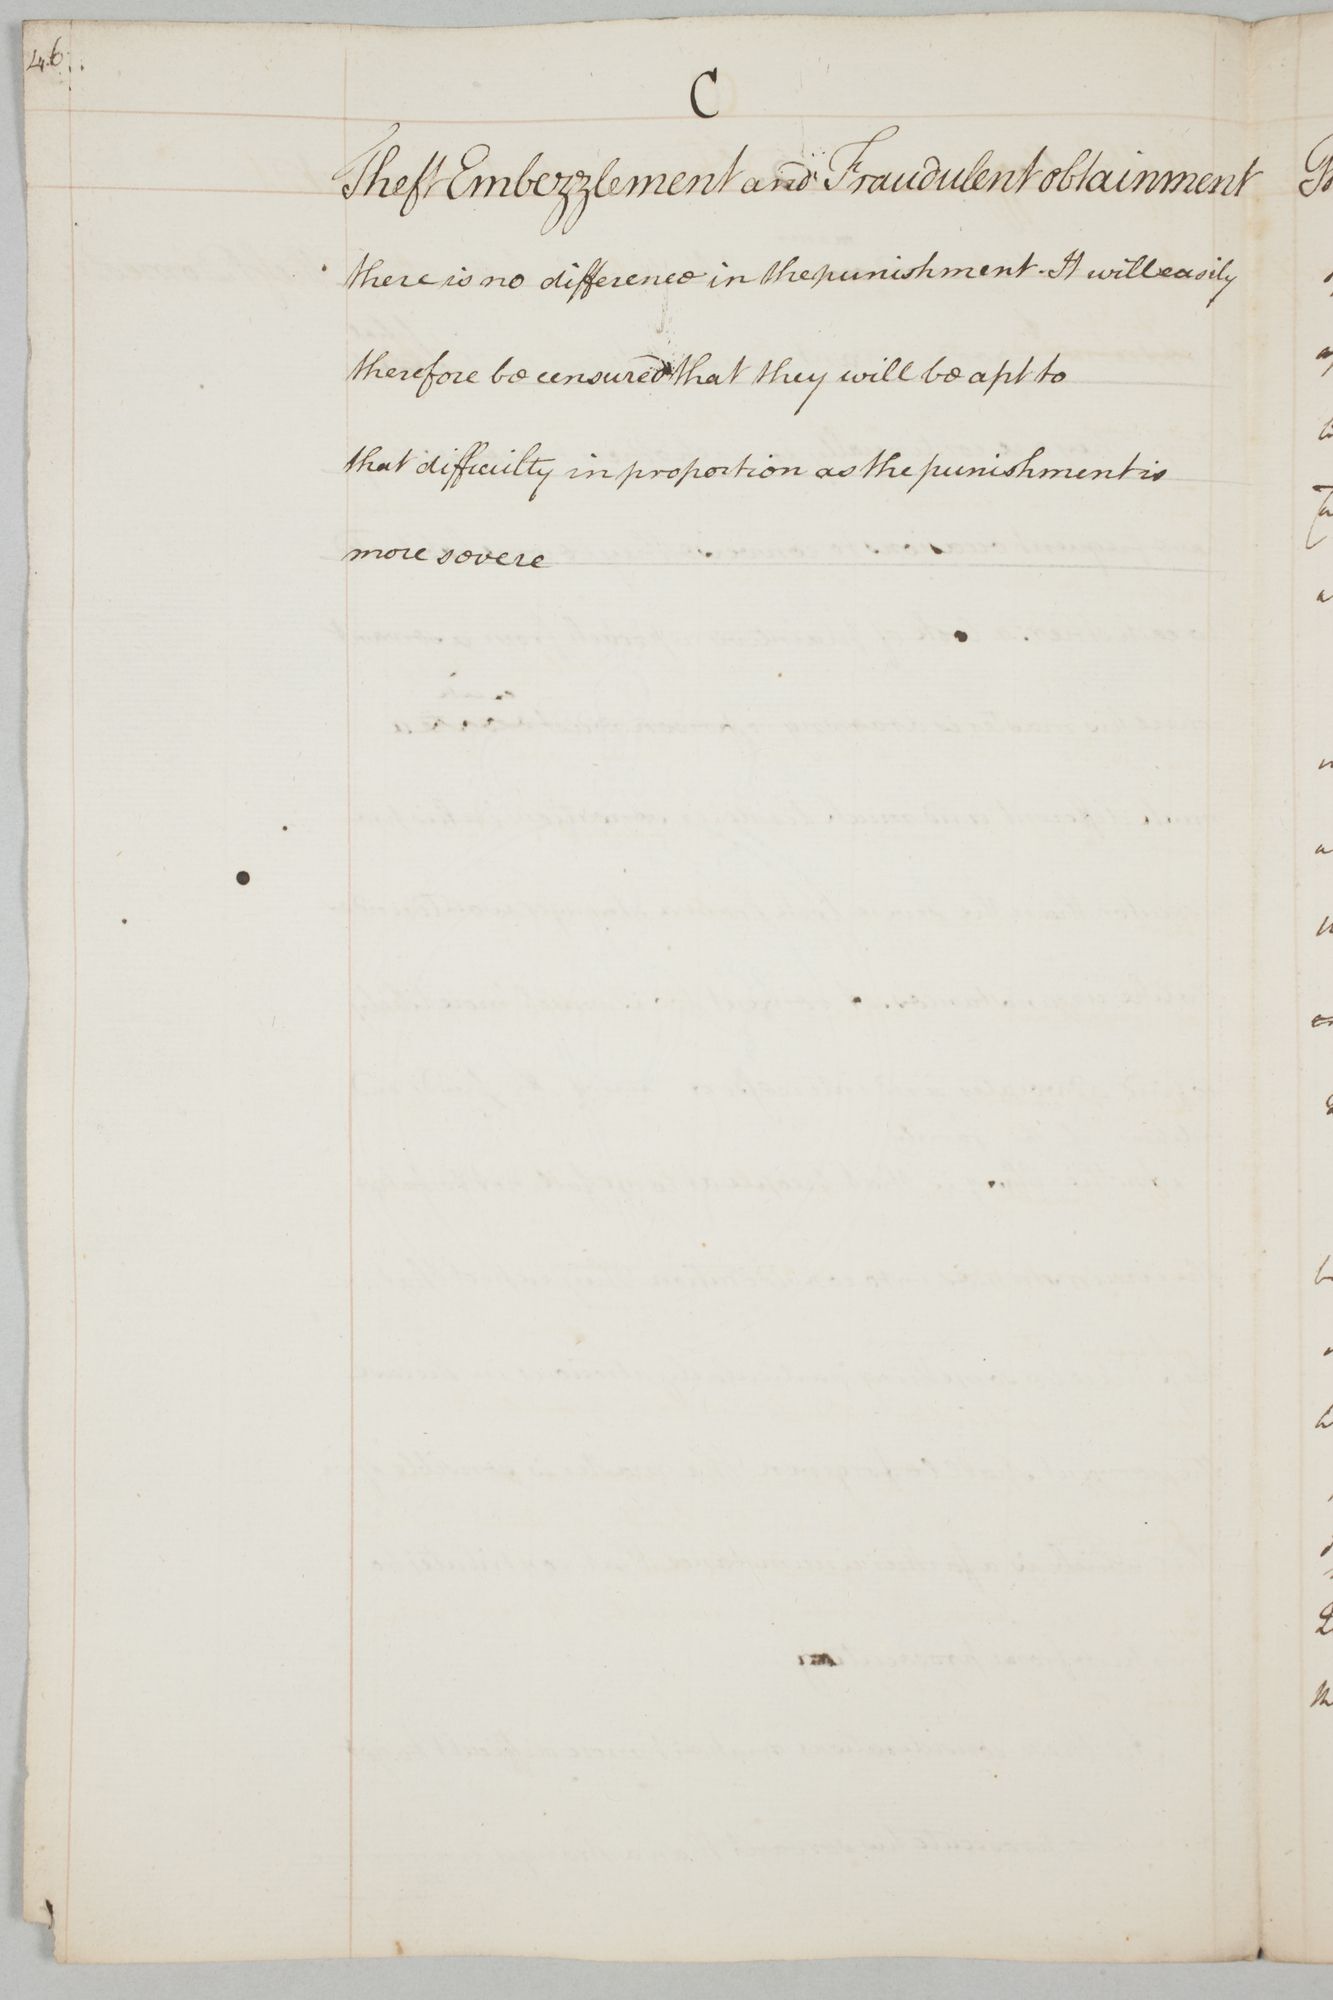 46
C
Theft Embezzlement and Fraudulent obtainment
there is no difference in the punishment. It will easily
therefore be censured that they will be apt to
that difficulty in proportion as the punishment is
more severe